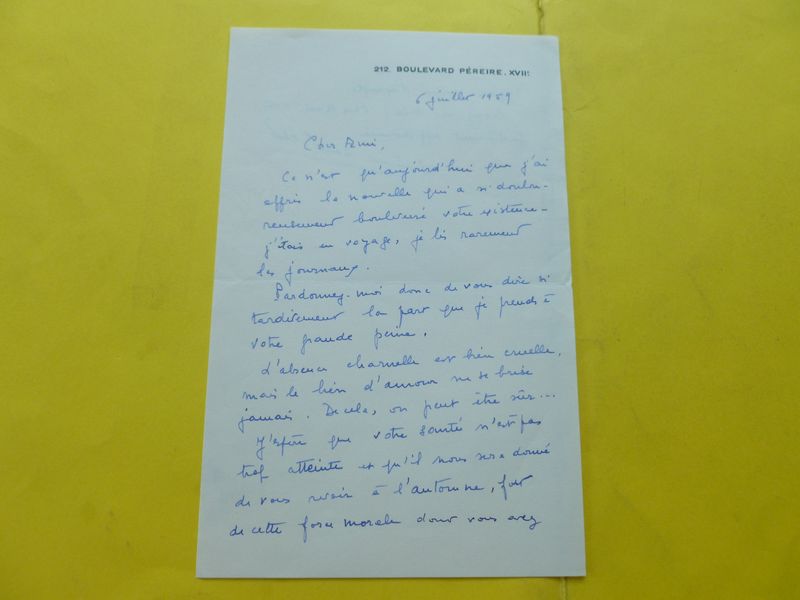 212. BOULEVARD PÉREIRE. XVIIE
6 juillet 1959
Cher Ami,
Ce n'est qu'aujourd'hui que j'ai
appris la nouvelle qui a si doulou-
reusement bouleversé votre existence -
j'étais en voyage, je lis rarement
les journaux.
Pardonnez-moi donc de vous dire si
tardivement la part que je prends à
votre grande peine.
L'absence charnelle est bien cruelle,
mais le lien d'amour ne se brise
jamais. De cela, on peut être sûr...
J'espère que votre santé n'est pas
trop atteinte et qu'il nous sera donné
de vous revoir à l'automne, fort
de cette force morale dont vous avez